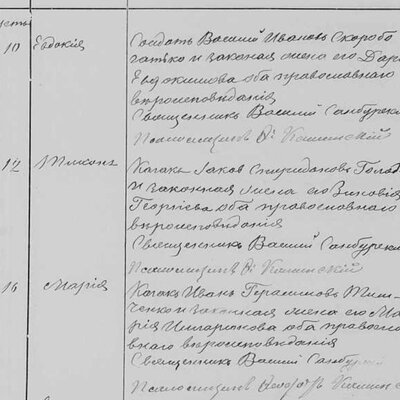 10 Евдокія Солдатъ Василій Ивановъ Скоробо
гатько и законная жена его Дарі
Евдокимова оба православнаго
вѣроисповѣданія
Священникъ Василій Самбурск
Псаломщикъ Ѳ. Камин скій
12 Козакъ Іаковъ Спиридоновъ Голод
и законная жена его Зиновія
Георгіева оба православнаго
вѣроисповѣданія
Священникъ Василій Самбурск
Псаломщикъ Ѳ. Каминскій
16 Марія Козакъ Иванъ Герасимовъ Тим
ченко и законная жена его Ма
рія оба правосла
внаго вѣроисповѣданія
Священникъ Василій Самбурскій
Псаломщикъ Ѳеодоръ Камин с